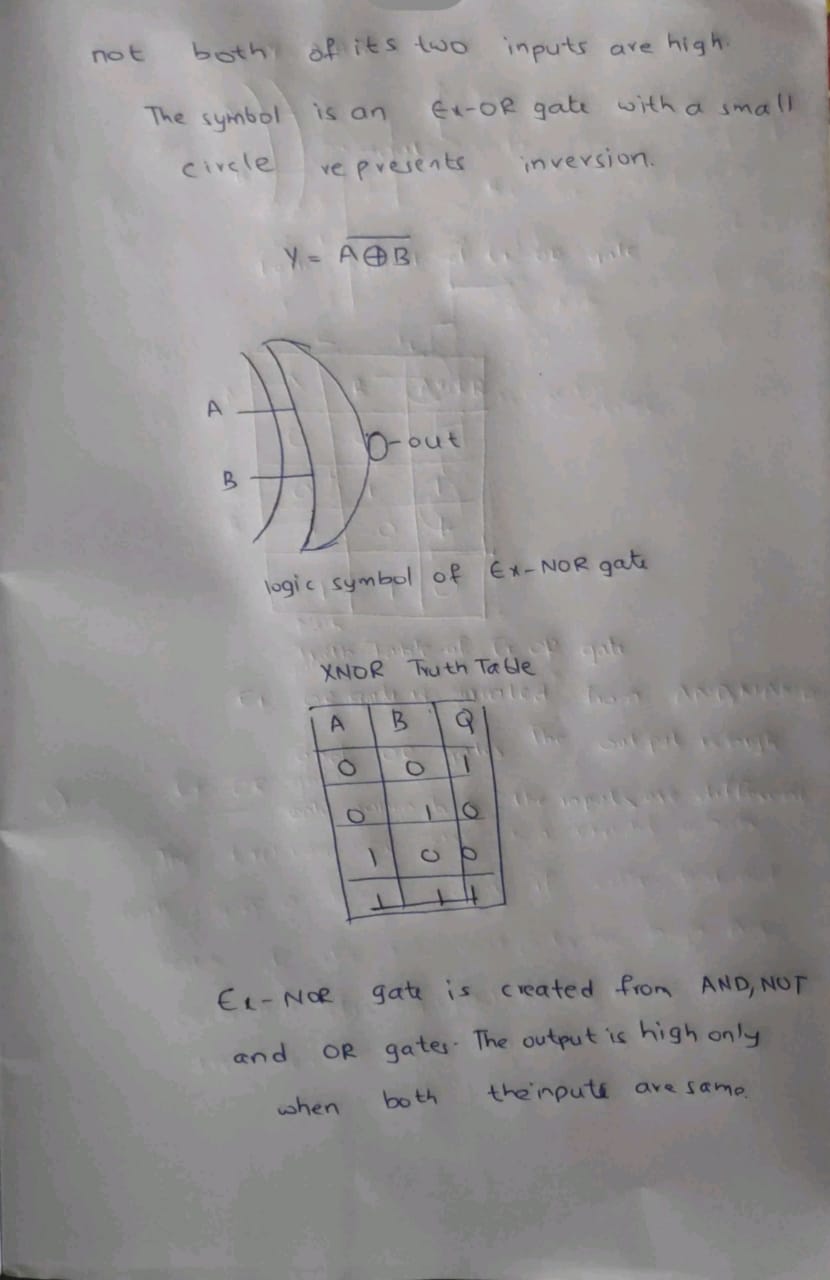 not both of its two inputs are high.
The symbol is an Ex-OR gate with a small
circle represents inversion.
Y = A̅ ̅⊕̅ ̅B̅
A
O-out
B
logic symbol of Ex-NOR gate
XNOR Truth Table
A B Q
0 0 1
0 1 0
1 0 0
1 1 1
Ex-NOR gate is created from AND, NOT
and OR gates. The output is high only
when both the inputs are same.